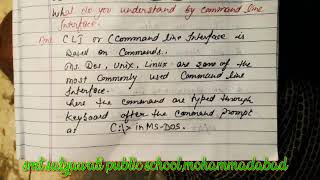 What do you understand by command line
Interface?
Ans: CLI or (Command line Interface is
based on Commands.
Ms. Dos, Unix, Linux are some of the
most commonly used Command line
Interface.
here the command are typed through
keyboard after the command prompt
as C:\> in MS-DOS.
smt.satyavati public school,mohammadabad